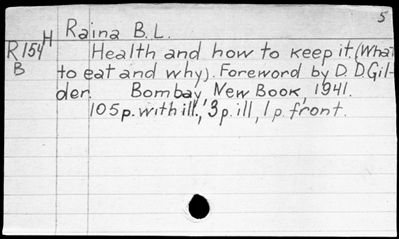 5
H Raina B.L.
R154 Health and how to keep it (What
B to eat and why). Foreword by D. D Gil-
der. Bombay, New Book, 1941.
105p. with ill., 3 p. ill, 1 p. front.